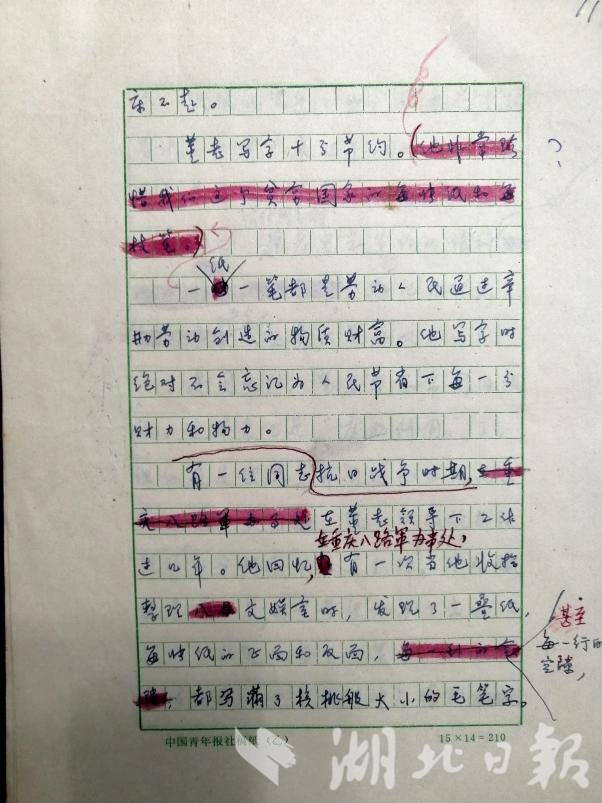 董老写字十分节约。(他非常珍
惜我们这个贫穷国家的每块纸和每
枝笔。)
纸
一 一笔都是劳动人民通过辛
勤劳动创造的物质财富。他写字时
绝对不会忘记为人民节省下每一分
财力和物力。
有一位同志抗日战争时期,在重
庆八路軍办事处 在董老领导下工作
在重庆八路軍办事处,
过几年。他回忆, 有一次当他收拾
整理 文娱室时,发现了一叠纸,
每块纸的正面和反面,每一行的空
隙,都写满了核桃般大小的毛笔字。
甚至
每一行的
空隙,
中国青年报社稿纸(乙) 15×14=210
湖北日報